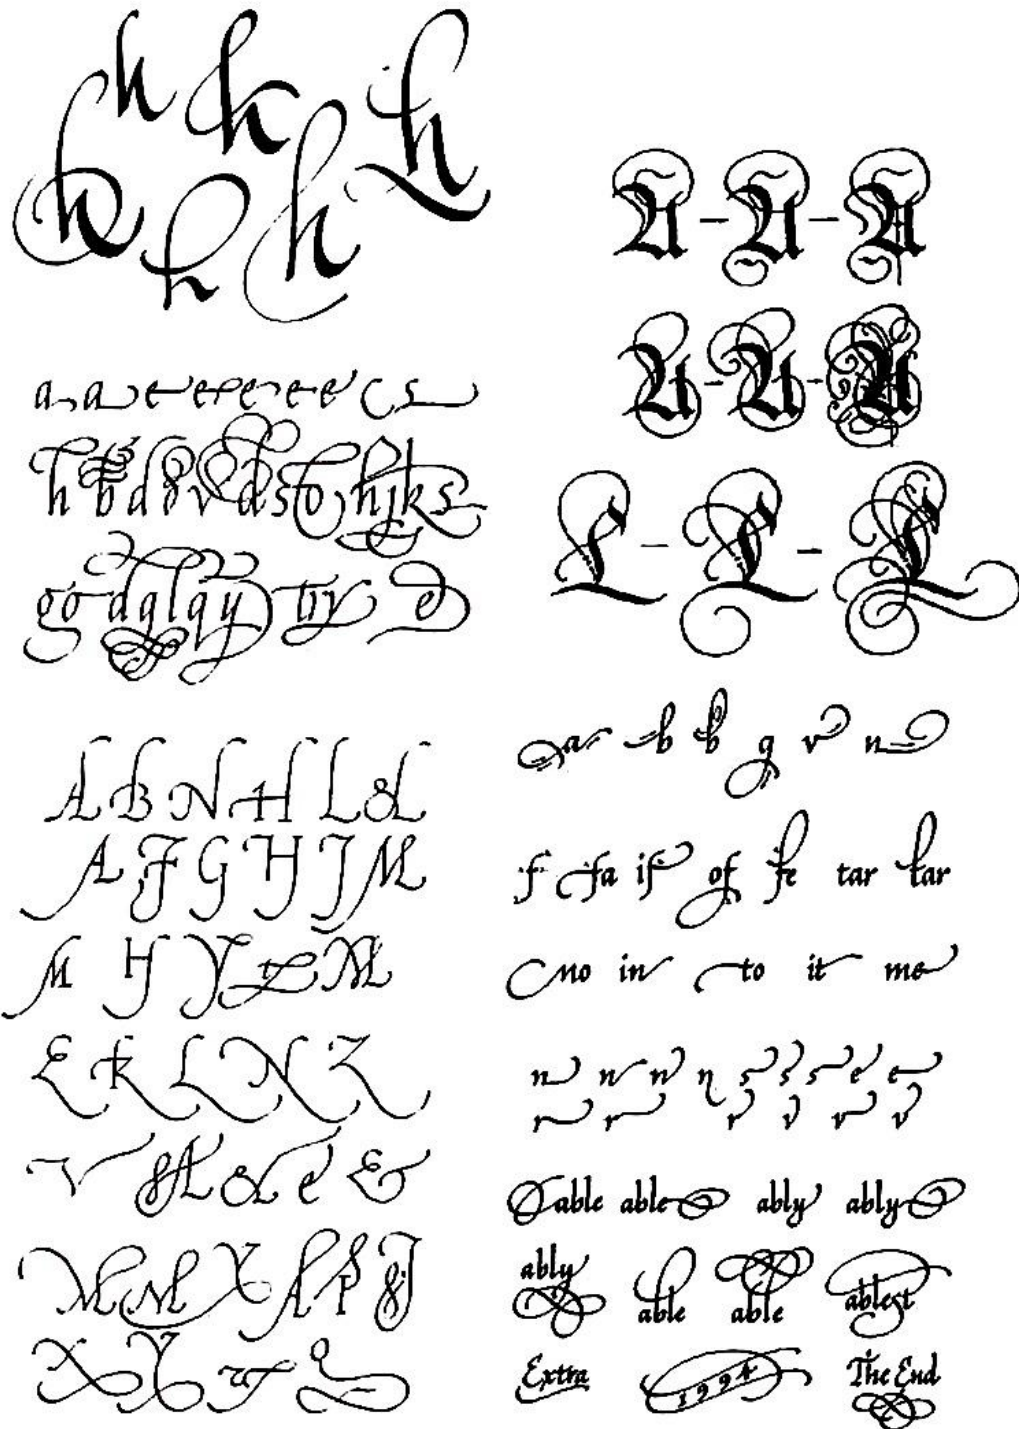 h h h
h h h
a a e e e e e c s
h b d v d s o h j k s
g o d q l q y try e
A B N H L &
A F G H J M
M H Y M
E K L N Z
V & e &
M M X A P J
X Y
A - A - A
A - A - A
L - L - L
a b b g v n
f fa if of fe tar tar
no in to it me
n n n n s s s e e
r r r v v v
able able ably ably
ably able able ablest
Extra 1994 The End